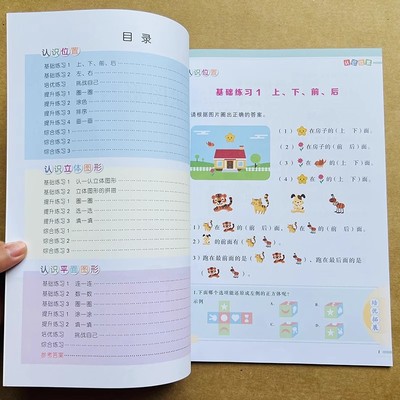 目 录
认识位置
基础练习1 上、下、前、后
基础练习2 左、右
培优练习 挑战自己
提升练习1 圈一圈
提升练习2 涂色
提升练习3 排序
提升练习4 画一画
综合练习1
综合练习2
综合练习3
认识立体图形
基础练习1 认一认立体图形
基础练习2 立体图形的拼搭
提升练习1 圈一圈
提升练习2 选一选
提升练习3 填一填
综合练习1
综合练习2
综合练习3
认识平面图形
基础练习1 连一连
基础练习2 数一数
提升练习1 圈一圈
提升练习2 涂一涂
提升练习3 填一填
培优练习 挑战自己
综合练习
参考答案
认识位置
基础练习1 上、下、前、后
请根据图片圈出正确的答案。
(1) 在房子的(上 下)面。
(2) 在房子的(前 后)面。
(3) 在 的(上 下)面。
(4) 在 的(上 下)面。
(1) 在 的(前 后)面, 在 的(前 后)面。
(2) 的前面有( )。
(3) 跑在最前面的是( ), 跑在最后面的是( )。
1.下面哪个选项能还原成左侧的正方体呢?
示例
A.
B.
C.
D.
培优拓展